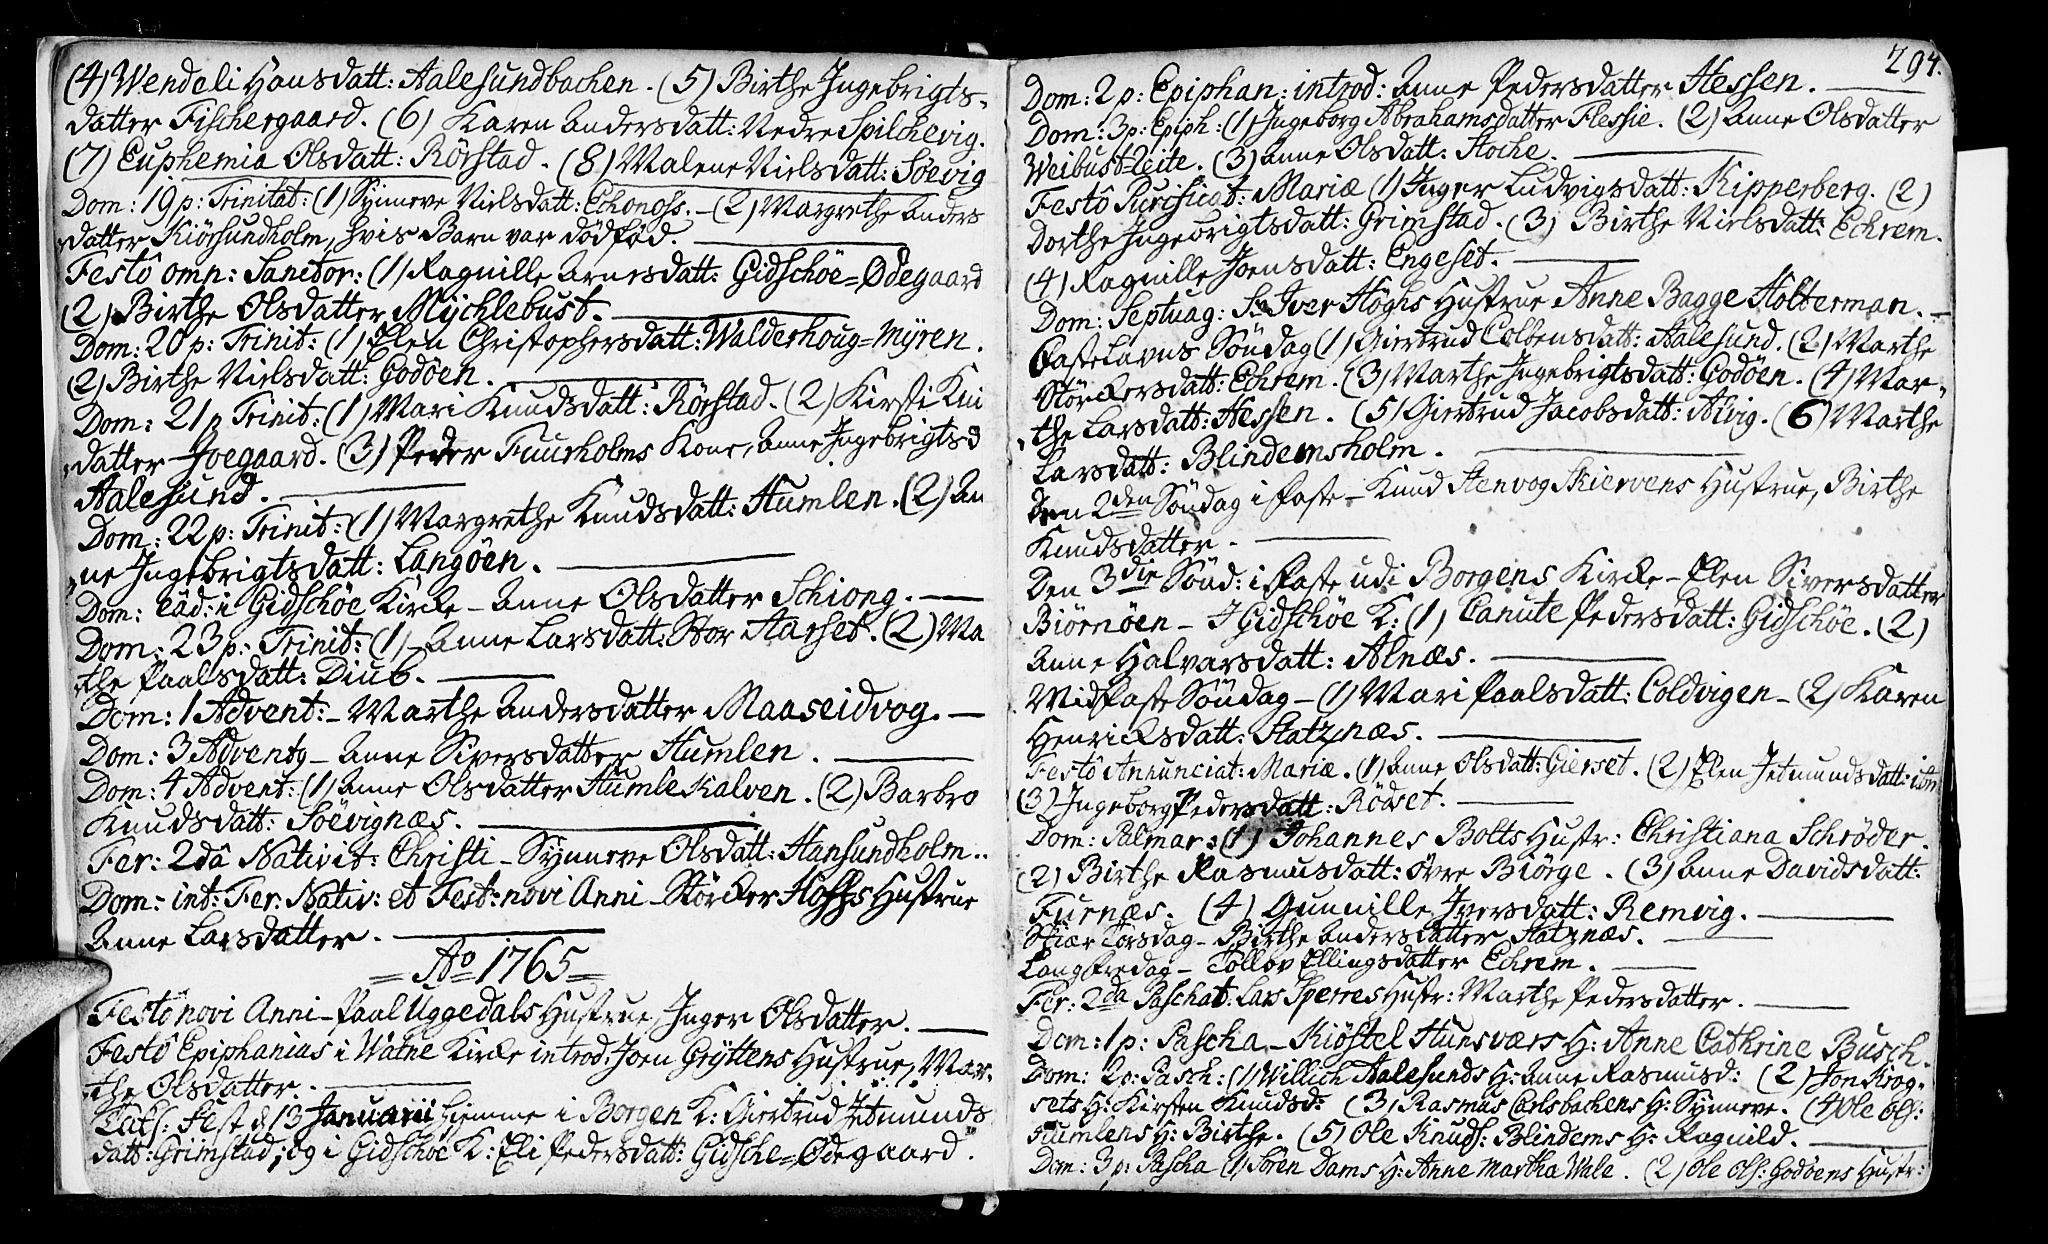 (4) Wendeli Hansdatt: Aalesundbachen. (5) Birthe Ingebrigts-
datter Fischergaard. (6) Karen Andersdatt: Nedre Spilchevig.
(7) Euphemia Olsdatt: Rörstad. (8) Malene Nielsdatt: Söevig
Dom: 19 p: Trinitat: (1) Synneve Nielsdatt: Echonoss. – (2) Margrethe Anders
datter Kiörsundholm, hvis Barn var dödföd.
Festô omn: Sanctor: (1) Ragnille Arnesdatt: Gidschöe=Ødegaard
(2) Birthe Olsdatter Mychlebust.
Dom: 20 p: Trinit: (1) Elen Christophersdatt: Walderhoug=Myren.
(2) Birthe Nielsdatt: Godöen.
Dom: 21 p Trinit: (1) Mari Knudsdatt: Rörstad. (2) Kirsti Knu
datter Joegaard. (3) Peder Fuurholms Kone, Anne Ingebrigtsd
Aalesund.
Dom: 22 p: Trinit: (1) Margrethe Knudsdatt: Humlen. (2) An
ne Ingebrigtsdatt: Langöen.
Dom: Ead: i Gidschöe Kirke – Anne Olsdatter Schiong.
Dom: 23 p: Trinit: (1) Anne Larsdatt: Stor Aarset. (2) Ma
the Paalsdatt: Diub.
Dom: 1 Advent: – Marthe Andersdatter Maaseidvog.
Dom: 3 Adventq – Anne Siversdatter Humlen.
Dom: 4 Advent: (1) Anne Olsdatter Humlekalven. (2) Barbro
Knudsdatt: Söevignæs.
Fer: 2dâ Nativit: Christi – Synneve Olsdatt: Hansundholm..
Dom: int: Fer: Nativ: et Fest: novi Anni – Störcker Hoffs Hustrue
Anne Larsdatter.
= Ao 1765 =
Festô novi Anni – Paal Uggedals Hustrue, Inger Olsdatter.
Festô Epiphanias i Watne Kirke introd: Joen Gryttens Hustrue, Mar-
the Olsdatter.
Taks: Fest d 13 Januarii hiemme i Borgen K: Giertrud Jetmunds
datt: Grimstad; og i Gidschöe K: Eli Pedersdatt: Gidsche=Ødegaard.
294.
Dom: 2 p: Epiphan: introd: Anne Pedersdatter Hessen.
Dom: 3 p: Epiph: (1) Ingeborg Abrahamsdatter Flessie. (2) Anne Olsdatter
Weibust=Leite. (3) Anne Olsdatt: Hoche.
Festô Purificat: Mariæ (1) Inger Ludvigsdatt: Kipperberg. (2)
Dorthe Ingebrigtsdatt: Grimstad. (3) Birthe Nielsdatt: Echrem.
(4) Ragnille Joensdatt: Engeset.
Dom: Septuag: Sr Iver Höghs Hustrue Anne Bagge Holterman.
Fastelavns Söndag (1) Giertrud Colbensdatt: Aalesund. (2) Marthe
Störkersdatt: Echrem. (3) Marthe Ingebrigtsdatt: Godöen. (4) Mar-
the Larsdatt: Hessen. (5) Giertrud Jacobsdatt: Alvig. (6) Marthe
Larsdatt: Blindemsholm.
Den 2den Söndag i Faste – Knud Stenvog Skiervens Hustrue, Birthe
Knudsdatter.
Den 3die Sönd: i Faste udi Borgens Kirke – Elen Siversdatter
Biörnöen – I Gidschöe K: (1) Canute Pedersdatt: Gidschöe. (2)
Anne Halvarsdatt: Alnæs.
Midfaste Söndag – (1) Mari Paalsdatt: Coldvigen – (2) Karen
Henricksdatt: Slatznæs.
Festô Annunciat: Mariæ. (1) Anne Olsdatt: Gierset. (2) Elen Jetmundsdatt:
(3) Ingeborg Pedersdatt: Rödset.
Dom: Palmar: (1) Johannes Bolts Hustr: Christiana Schrøder.
(2) Birthe Rasmusdatt: Övre Biörge. (3) Anne Davidsdatt:
Furnæs. (4) Gunnille Iversdatt: Remvig.
Skiær Torsdag – Birthe Andersdatter Slatznæs.
Langfredag – Tollov Ellingsdatter Echrem.
Fer: 2da Paschat: Lars Sperres Hustr: Marthe Pedersdatter.
Dom: 1 p: Pascha – Kiöstel Hunsværs H: Anne Cathrine Busch.
Dom: 2 p: Pasch: (1) Willich Aalesunds H: Anne Rasmusd: (2) Jon Krog-
sets H: Kirsten Knudsd: (3) Rasmus Carlsbachens H: Synneve. (4) Ole Ols:
Humlens H: Birthe. (5) Ole Knuds: Blindems H: Ragnild.
Dom: 3 p: Pascha (1) Sören Dams H: Anne Martha Wale. (2) Ole Ols: Godöens Hustr: